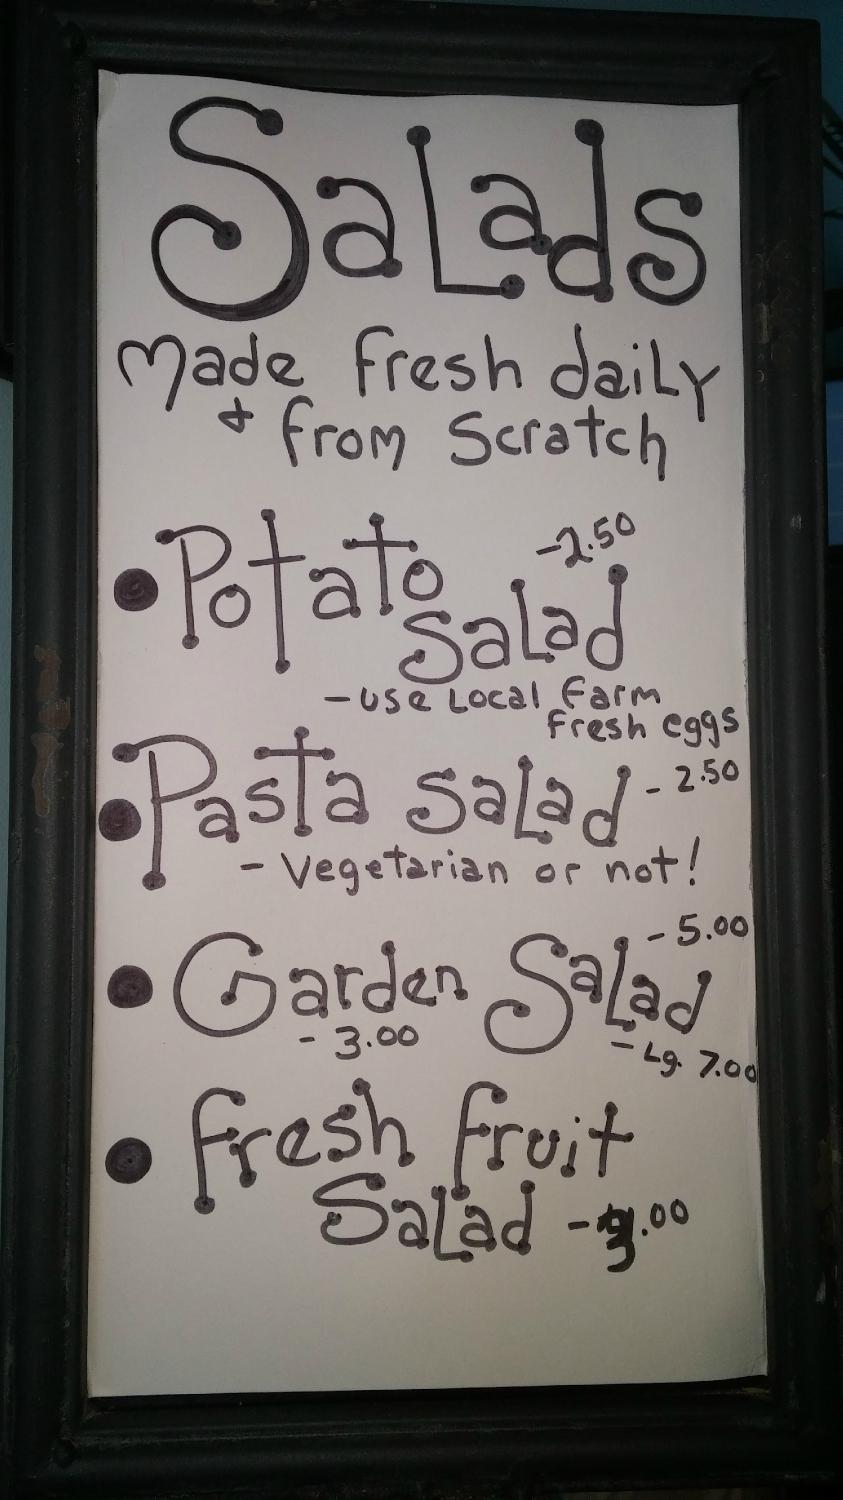 SaLads
Made fresh daiLy
+ from Scratch
• Potato -2.50
SaLad
- use Local farm
fresh eggs
• Pasta SaLad - 2.50
- Vegetarian or not!
• Garden SaLad - 5.00
- 3.00
- Lg. 7.00
• fresh fruit
SaLad - .00